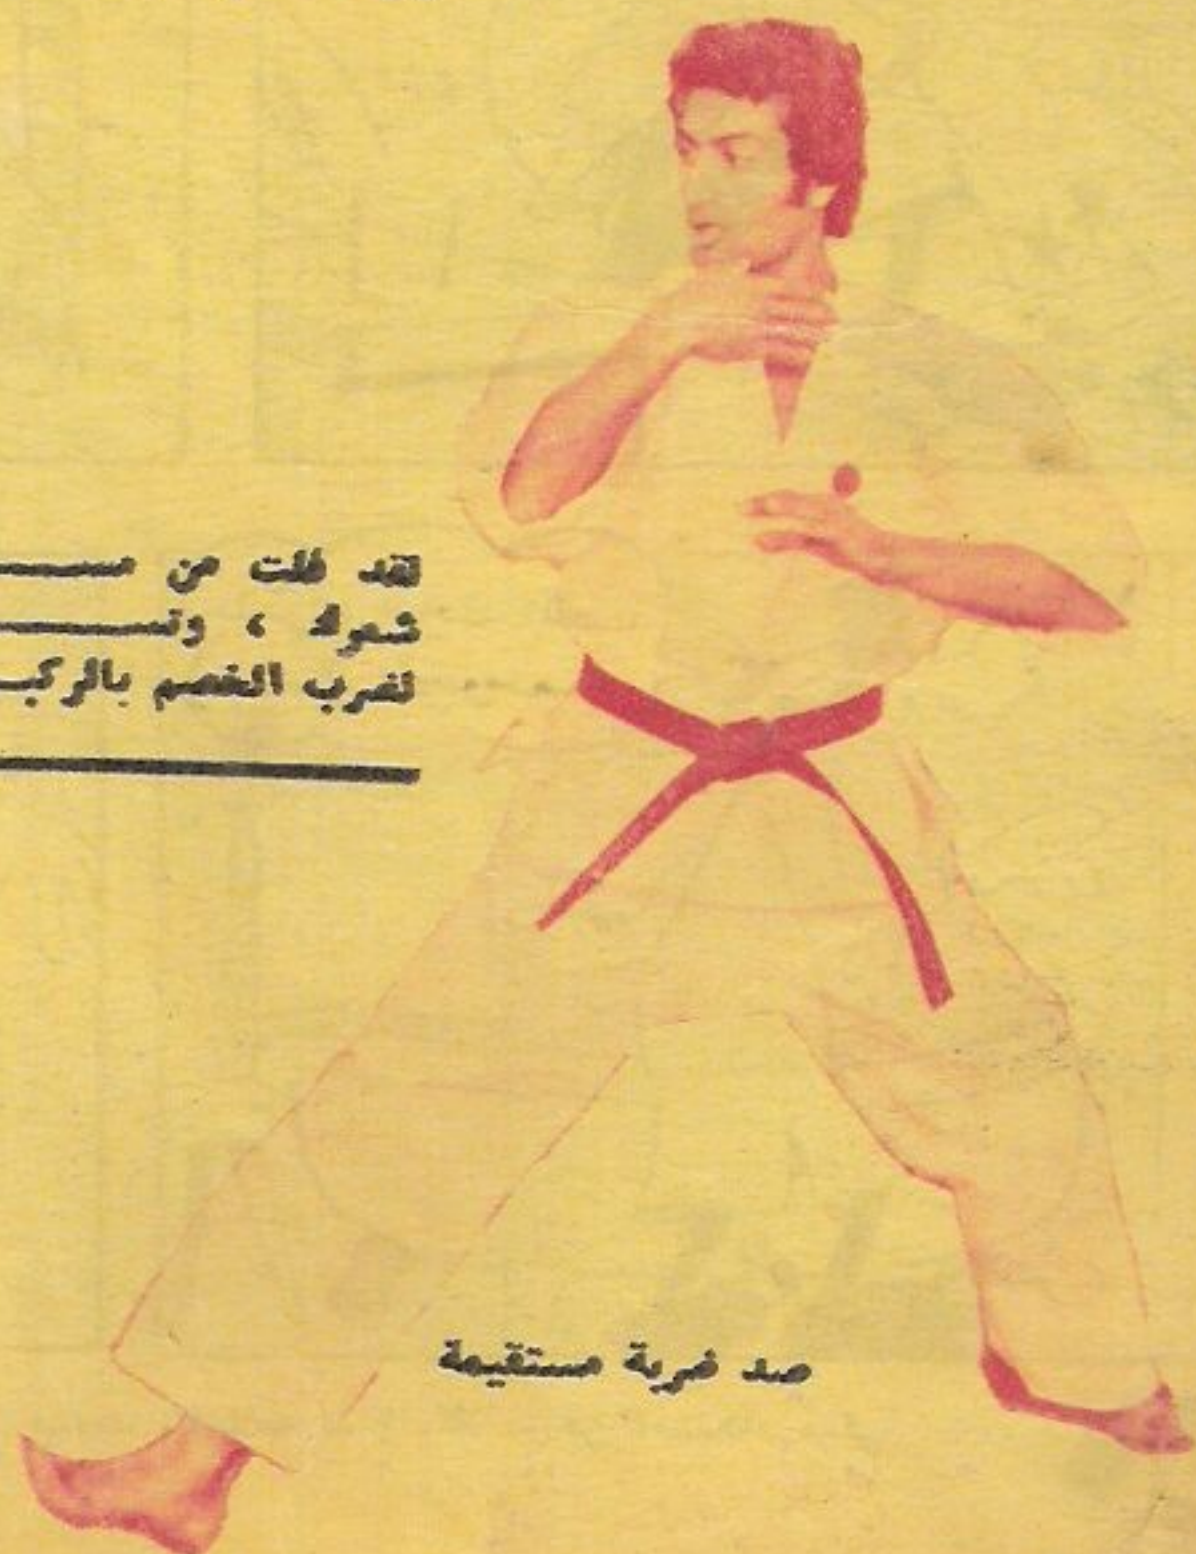 لقد فلت من مســـ
شعرك ، وتســـ
لضرب الخصم بالركبـ
صد ضربة مستقيمة